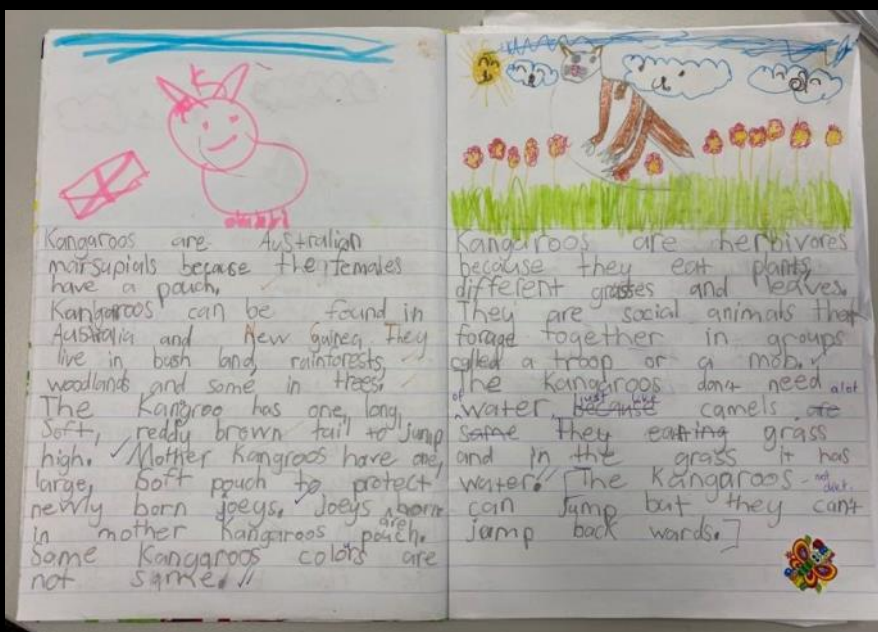 Kangaroos are Australian
marsupials because the females
have a pouch.
Kangaroos can be found in
Australia and New Guinea. They
live in bush land, rainforests,
woodlands and some in trees.
The Kangroo has one, long,
Soft, reddy brown tail to jump
high. Mother Kangroos have one,
large, Soft pouch to protect
newly born joeys. Joeys are born
in mother Kangaroos pouch.
Some Kangaroos colors are
not same.
Kangaroos are herbivores
because they eat plants,
different grasses and leaves.
They are social animals that
forage together in groups
called a troop or a mob.
The Kangaroos don't need a lot
of water, because just like camels are
same They eating grass
and in the grass it has
water. [The Kangaroos
can Jump but they can't
jump back wards.]